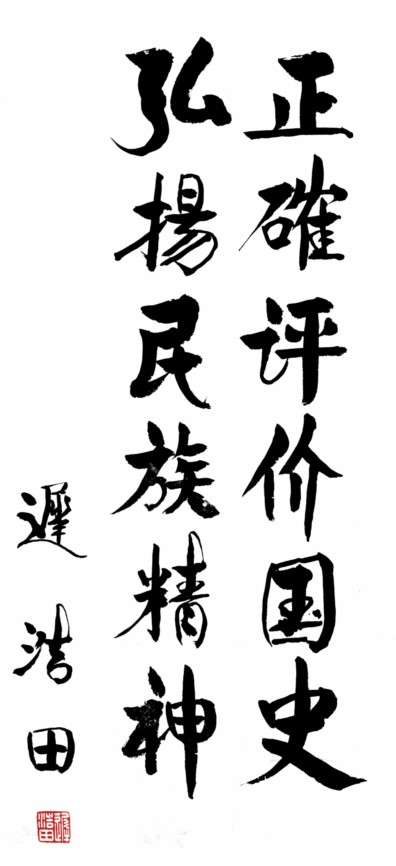 正確评价国史
弘揚民族精神
遲浩田